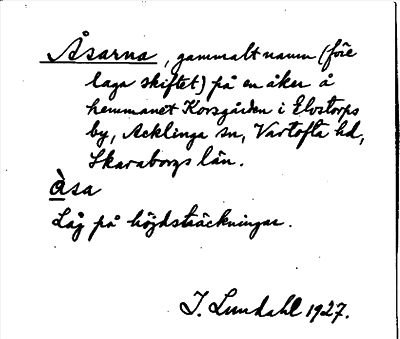 Åsarna, gammalt namn (före
laga skiftet) på en åker å
hemmanet Korsgården i Elvstorps
by, Acklinga sn, Vartofta hd,
Skaraborgs län.
Åsa
Låg på höjdsträckningar.
J. Lundahl 1927.